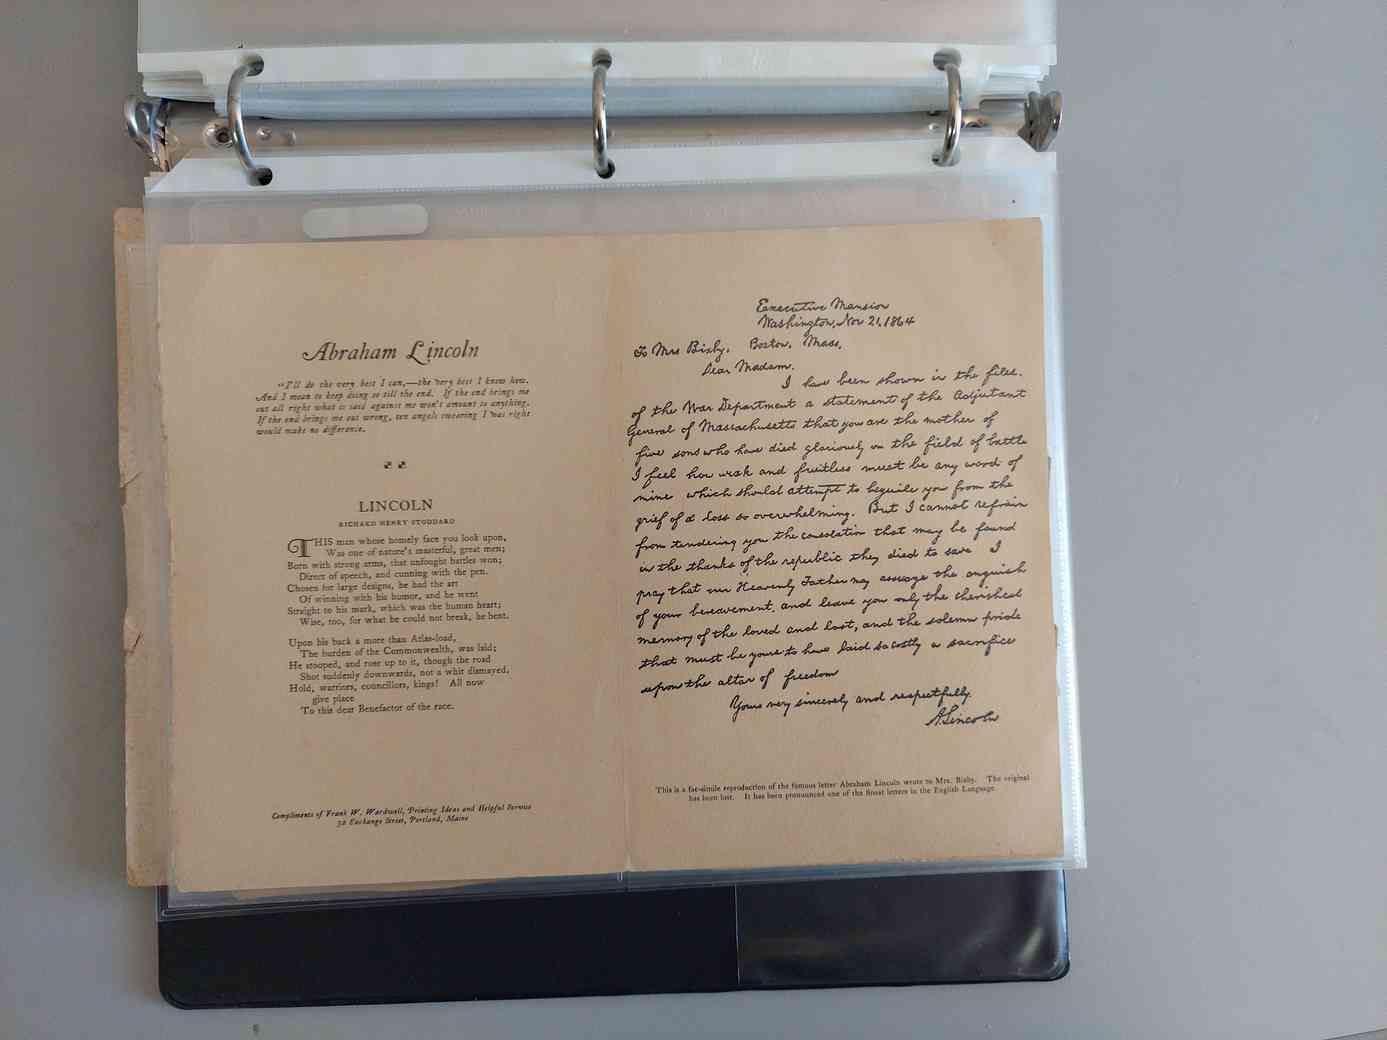 Abraham Lincoln
"I'll do the very best I can,—the very best I know how.
And I mean to keep doing so till the end. If the end brings me
out all right what is said against me won't amount to anything.
If the end brings me out wrong, ten angels swearing I was right
would make no difference.
LINCOLN
RICHARD HENRY STODDARD
THIS man whose homely face you look upon,
Was one of nature's masterful, great men;
Born with strong arms, that unfought battles won;
Direct of speech, and cunning with the pen.
Chosen for large designs, he had the art
Of winning with his humor, and he went
Straight to his mark, which was the human heart;
Wise, too, for what he could not break, he bent.
Upon his back a more than Atlas-load,
The burden of the Commonwealth, was laid;
He stooped, and rose up to it, though the road
Shot suddenly downwards, not a whit dismayed.
Hold, warriors, councillors, kings! All now
give place
To this dear Benefactor of the race.
Compliments of Frank W. Wardwell, Printing Ideas and Helpful Service
32 Exchange Street, Portland, Maine
Executive Mansion
Washington, Nov 21, 1864
To Mrs Bixby, Boston, Mass,
Dear Madam.
I have been shown in the files.
of the War Department a statement of the Adjutant
General of Massachusetts that you are the mother of
five sons who have died gloriously on the field of battle
I feel how weak and fruitless must be any word of
mine which should attempt to beguile you from the
grief of a loss so overwhelming. But I cannot refrain
from tendering you the consolation that may be found
in the thanks of the republic they died to save I
pray that our Heavenly Father may assuage the anguish
of your bereavement, and leave you only the cherished
memory of the loved and lost, and the solemn pride
that must be yours to have laid so costly a sacrifice
upon the altar of freedom
Yours very sincerely and respectfully.
A. Lincoln
This is a fac-simile reproduction of the famous letter Abraham Lincoln wrote to Mrs. Bixby. The original
has been lost. It has been pronounced one of the finest letters in the English Language.